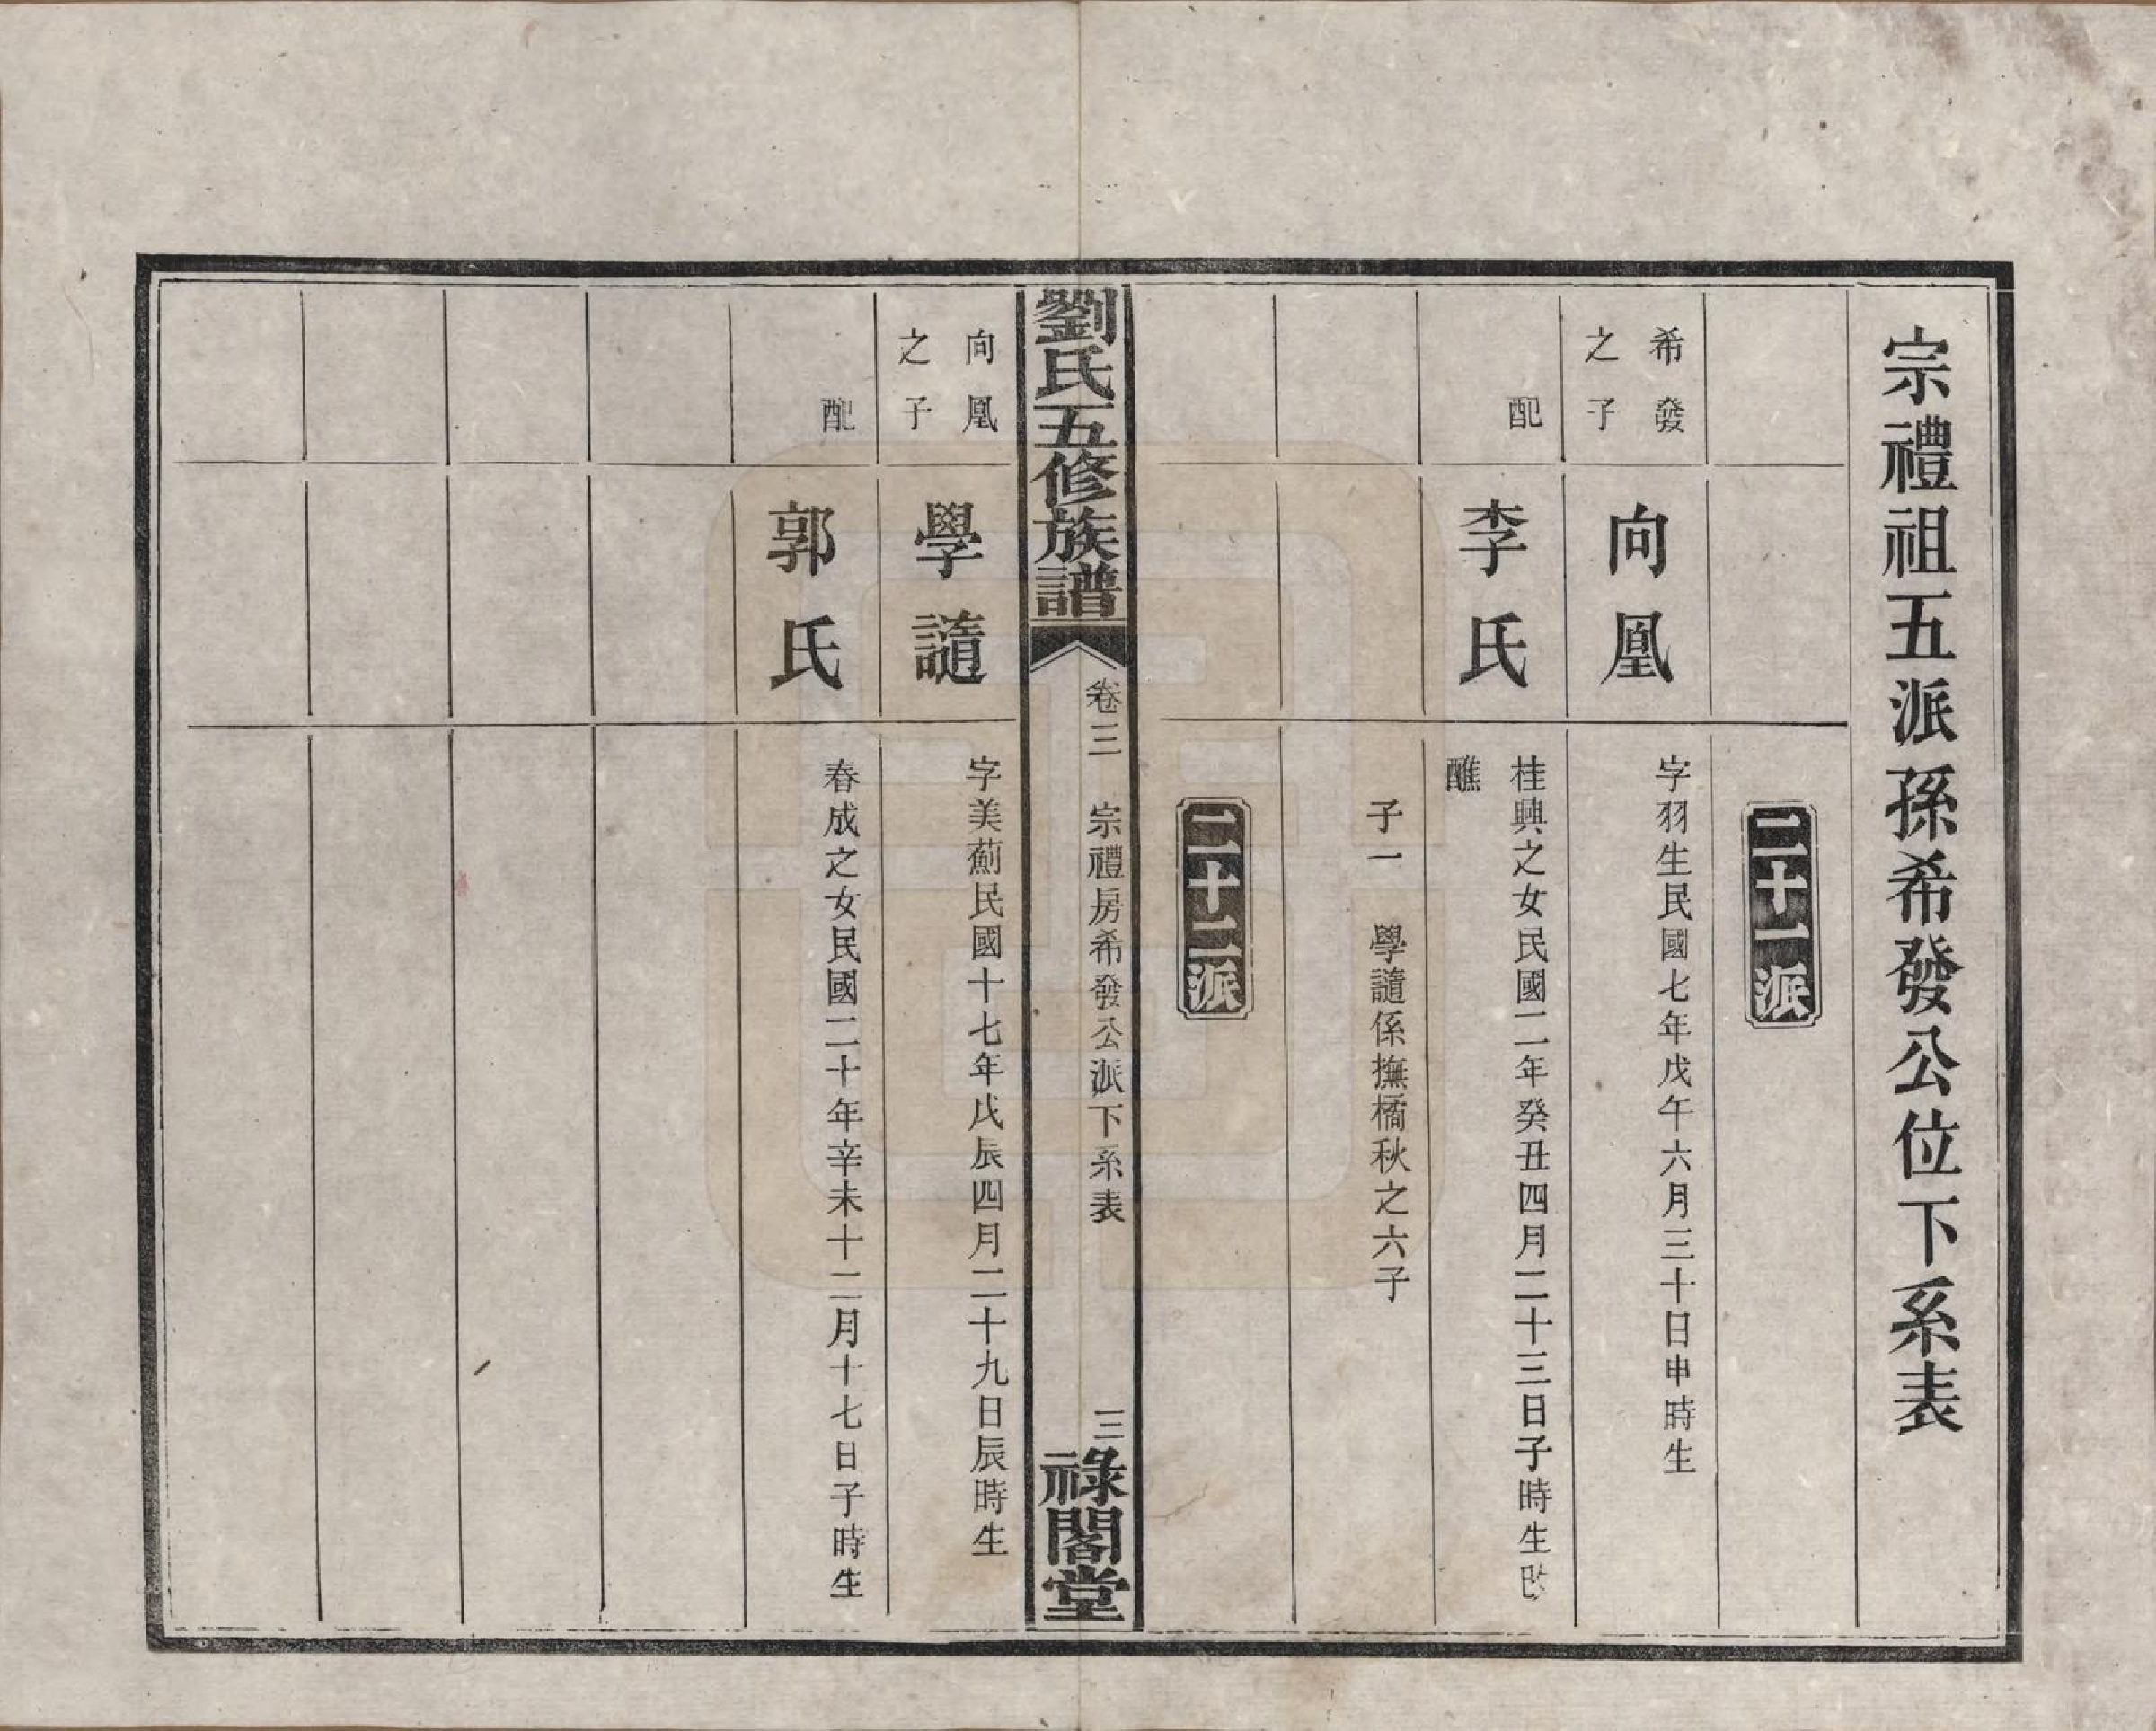 宗禮祖五派孫希發公位下系表
二十一派
希發
之子
向凰
字羽生民國七年戊午六月三十日申時生
配
李氏
桂興之女民國二年癸丑四月二十三日子時生改
醮
子一 學譢係撫橘秋之六子
二十二派
劉氏五修族譜
卷三 宗禮房希發公派下系表 三
祿閣堂
向凰
之子
學譢
字美薊民國十七年戊辰四月二十九日辰時生
配
郭氏
春成之女民國二十年辛未十二月十七日子時生